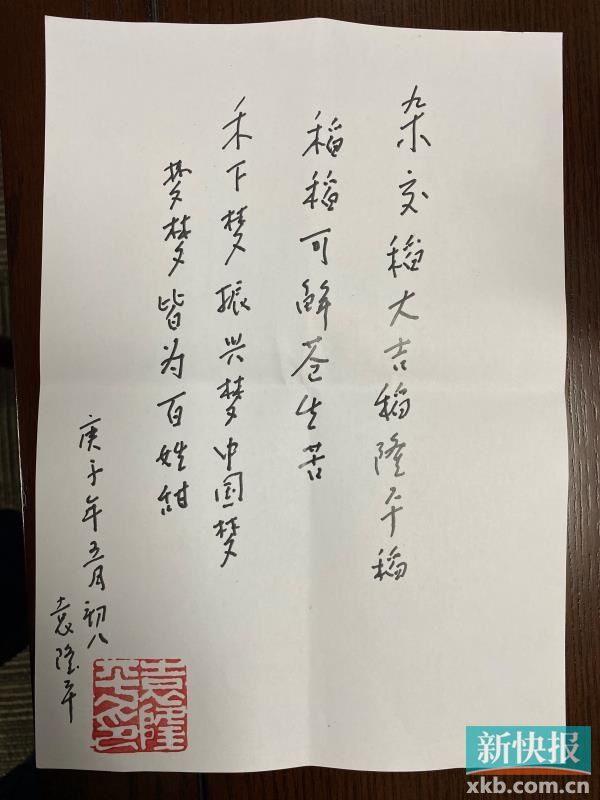 杂交稻大吉稻隆平稻
稻稻可解苍生苦
禾下梦振兴梦中国梦
梦梦皆为百姓甜
庚子年五月初八
袁隆平
袁隆平印
新快报
xkb.com.cn